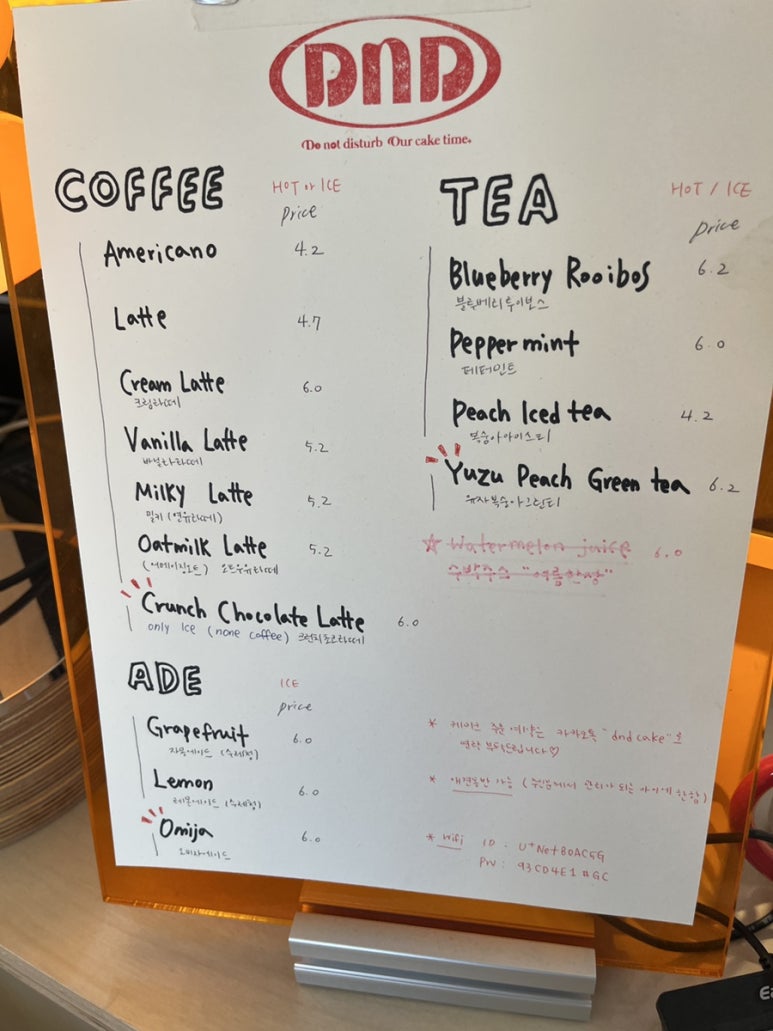 DND
Do not disturb Our cake time.
COFFEE HOT or ICE
price
Americano 4.2
Latte 4.7
Cream Latte 6.0
크림라떼
Vanilla Latte 5.2
바닐라라떼
Milky Latte 5.2
밀키 (연유라떼)
Oatmilk Latte 5.2
(어메이징오트) 오트우유라떼
Crunch Chocolate Latte 6.0
only Ice (none coffee) 크런치초코라떼
ADE ICE
price
Grapefruit 6.0
자몽에이드 (수제청)
Lemon 6.0
레몬에이드 (수제청)
Omija 6.0
오미자에이드
TEA HOT / ICE
price
Blueberry Rooibos 6.2
블루베리루이보스
Peppermint 6.0
페퍼민트
Peach Iced tea 4.2
복숭아아이스티
Yuzu Peach Green tea 6.2
유자복숭아그린티
☆ Watermelon juice 6.0
수박주스 "여름한정"
* 케이크 주문 예약은 카카오톡 "dnd cake"로
연락 부탁드립니다♡
* 애견동반 가능 (주인분께서 관리가 되는 아이에 한함)
* Wifi ID : U+Net80AC
PW : 93CD4E1#GC